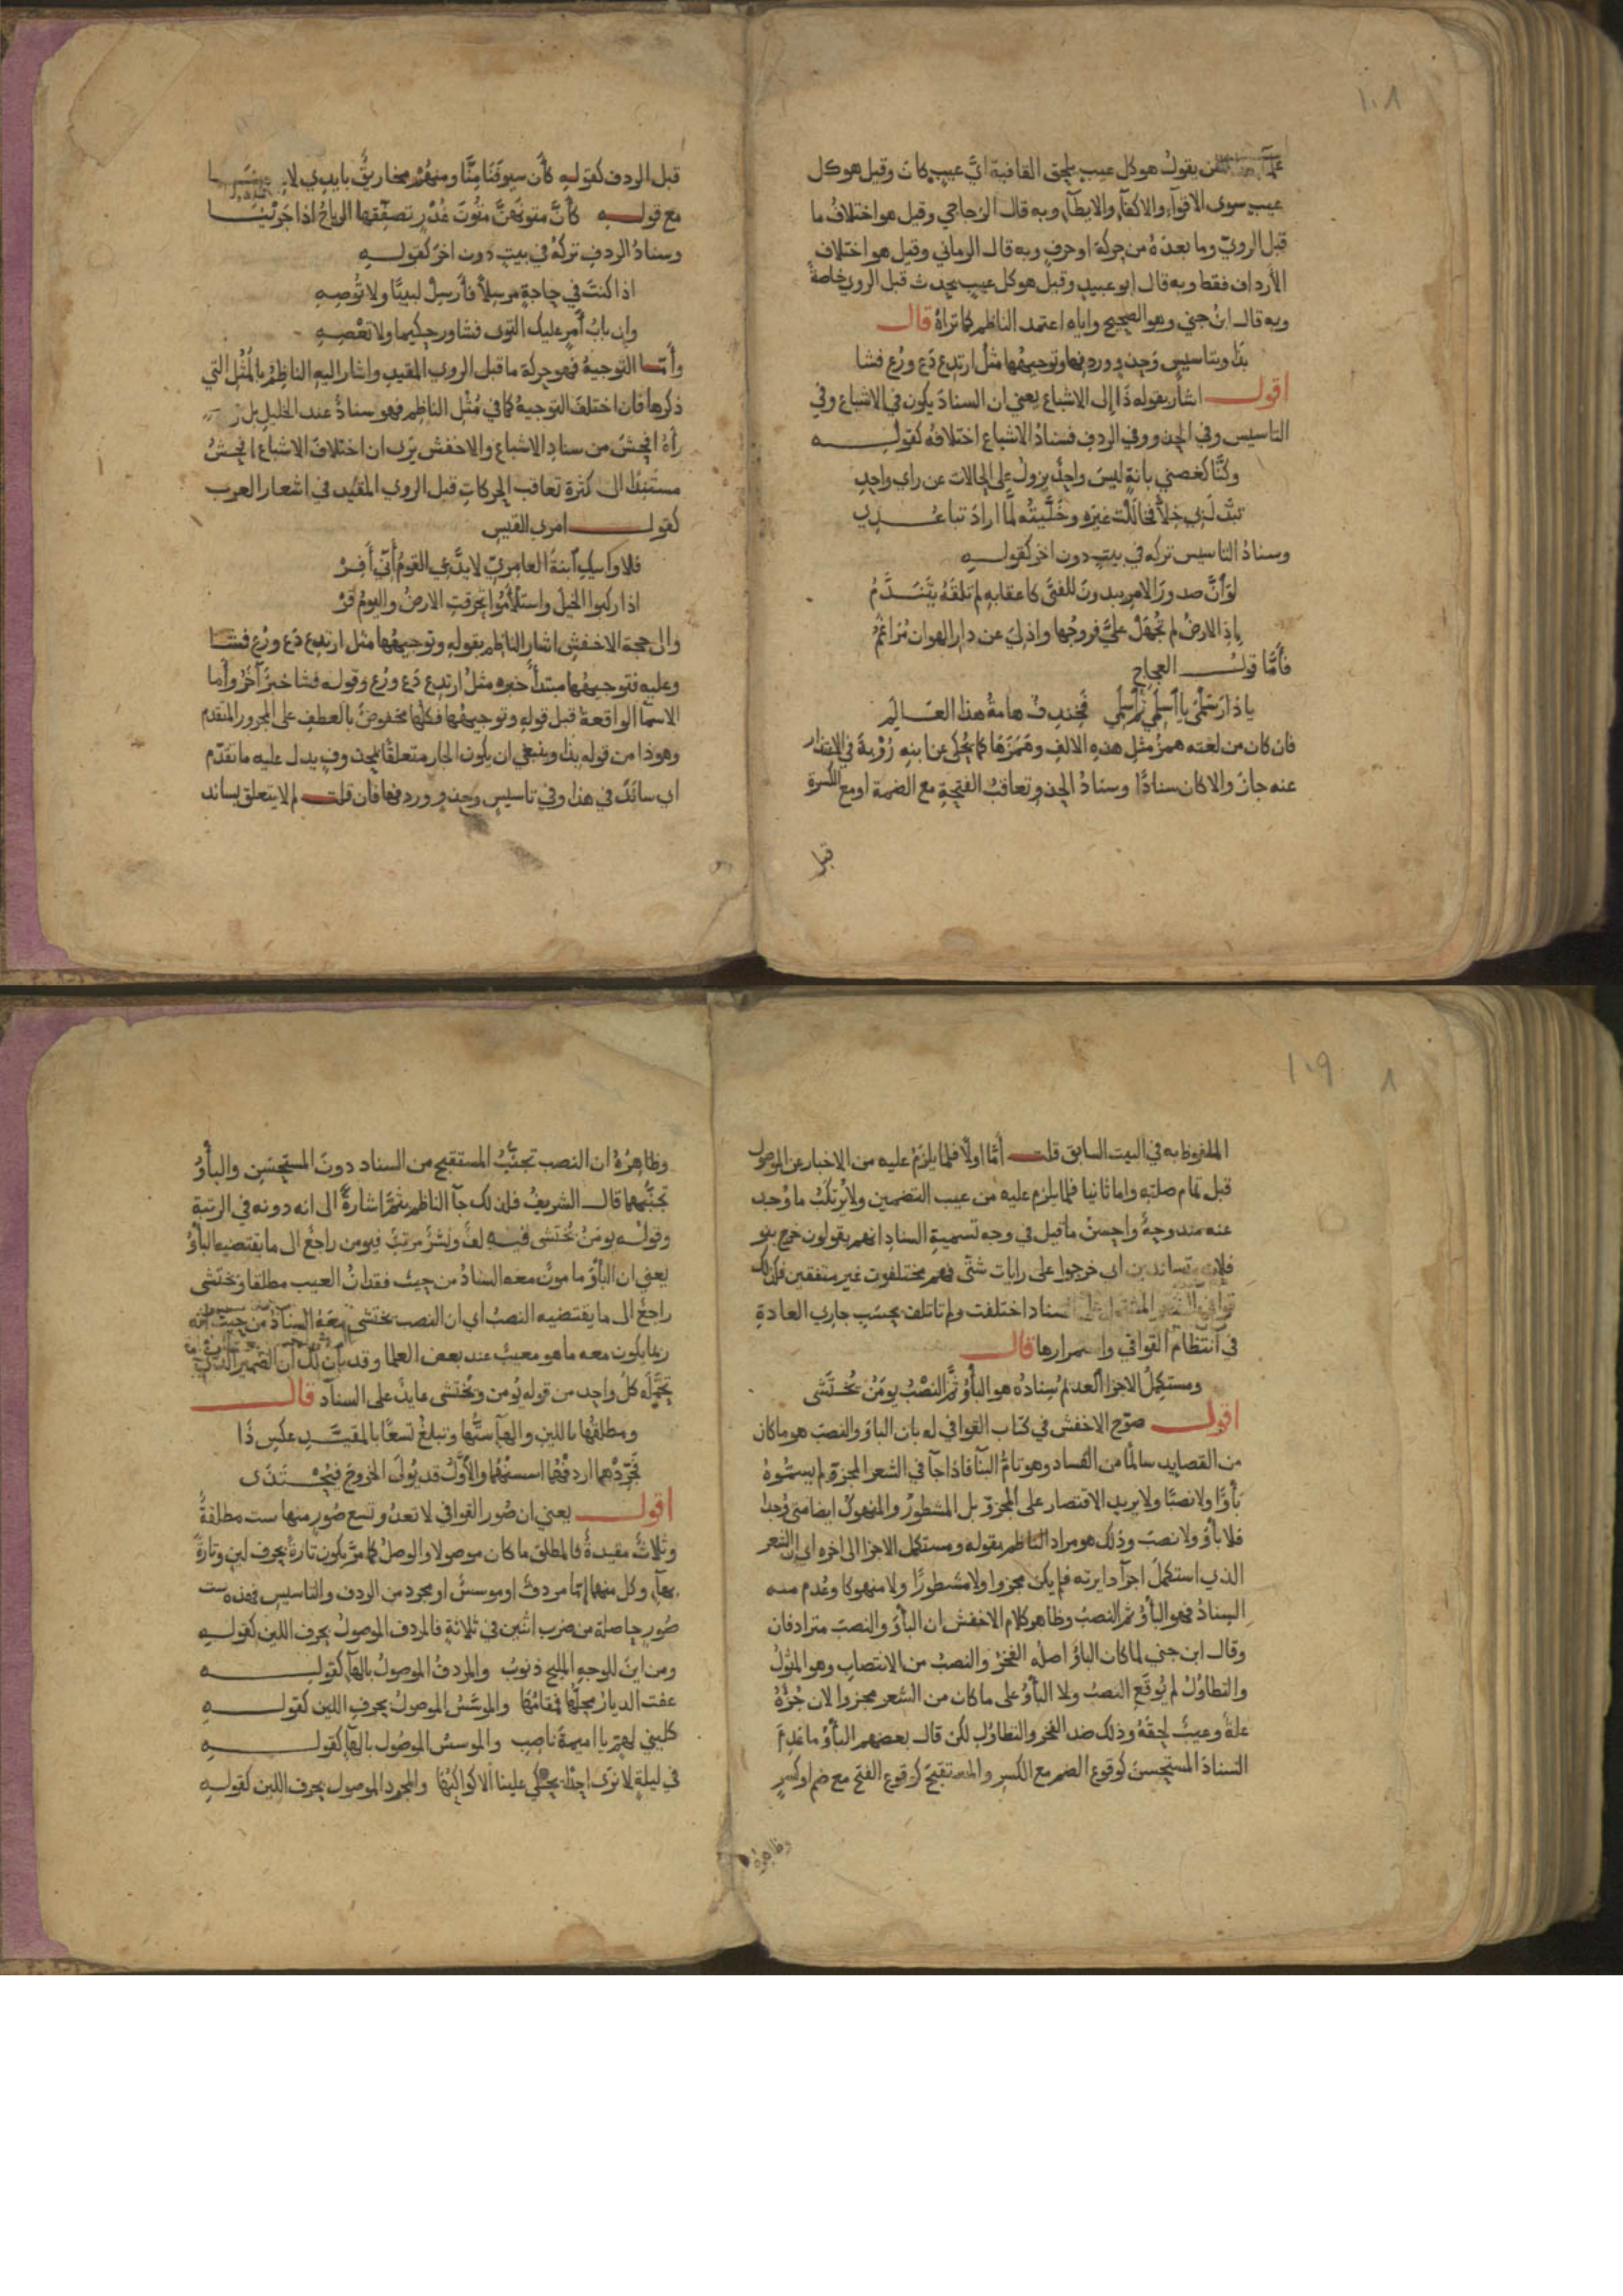 ١٠٨
من يقول هو كل عيب يلحق القافية اي عيب كان وقيل هو كل
عيب سوى الاقوآء والاكفآء والايطآء وبه قال الزجاجي وقيل هو اختلاف ما
قبل الرويّ وما بعده من حركة او حرف وبه قال الرماني وقيل هو اختلاف
الأرداف فقط وبه قال ابو عبيد وقيل هو كل عيب يحدث قبل الروي خاصة
وبه قال ابن جني وهو الصحيح واياه اعتمد الناظم كما تراه قال
بذا وبتاسيس وحذو وردفها وتوجيهها مثل ارتدع دع ورع فشا
اقول اشار بقوله ذا إلى الاشباع يعني ان السناد يكون في الاشباع وفي
التاسيس وفي الحذو وفي الردف فسناد الاشباع اختلافه كقوله
وكنّا كغصني بانة ليس واحد يزول على الحالات عن راي واحد
تبدّل بي خلّا فخاللت غيره وخلّيته لمّا اراد تباعدي
وسناد التاسيس تركه في بيت دون اخر كقوله
لوَ انّ صدور الامر يبدون للفتى كاعقابه لم تلقه يتندّم
باذ الارض لم تجهل عليّ فروجها واذ لي عن دار الهوان مراغم
فأمّا قول العجاج
يا دار سلمى يا اسلمي ثم اسلمي فخندف هامة هذا العالم
فان كان من لغته همز مثل هذه الالف وهمزها كما يحكى عن ابنه رؤبة في الاعتذار
عنه جاز والا كان سنادًا وسناد الحذو تعاقب الفتحة مع الضمة او مع الكسرة
قبل
قبل الردف كقوله كأن سيوفنا منّا ومنهم مخاريق بايدي لاعبينا
مع قوله كأنّ متونهنّ متون غدر تصفّقها الرياح اذا جرينا
وسناد الردف تركه في بيت دون اخر كقوله
اذا كنت في حاجة مرسلًا فأرسل لبيبًا ولا توصه
وان باب أمر عليك التوى فشاور حكيما ولا تعصه
وأمّا التوجيه فهو حركة ما قبل الروي المقيد واشار اليه الناظم بالمثل التي
ذكرها فان اختلف التوجيه كما في مثل الناظم فهو سناد عند الخليل بل
رآه افحش من سناد الاشباع والاخفش يرى ان اختلاف الاشباع افحش
مستندًا الى كثرة تعاقب الحركات قبل الروي المقيد في اشعار العرب
كقول امرئ القيس
فلا وابيك ابنة العامريّ لا يدّعي القوم أنّي أفر
اذا ركبوا الخيل واستلأموا تحرقت الارض واليوم قر
والى حجة الاخفش اشار الناظم بقوله وتوجيهها مثل ارتدع دع ورع فشا
وعليه فتوجيهها مبتدأ خبره مثل ارتدع دع ورع وقوله فشا خبر آخر وأما
الاسمآ الواقعة قبل قوله وتوجيهها فكلها مخفوض بالعطف على المجرور المتقدم
وهو ذا من قوله بذا وينبغي ان يكون الجار متعلقا بمحذوف يدل عليه ما تقدّم
اي ساند في هذا وفي تاسيس وحذو وردفها فان قلت لم لا يتعلق بساند
١٠٩
الملفوظ به في البيت السابق قلت أمّا اولًا فلما يلزم عليه من الاخبار عن الموصول
قبل تمام صلته واما ثانيا فلما يلزم عليه من عيب التضمين ولا يرتكب ما وجد
عنه مندوحة واحسن ما قيل في وجه تسمية السناد انهم يقولون خرج بنو
فلان متساندين اي خرجوا على رايات شتّى فهم مختلفون غير متفقين فكذلك
قوافي الشعر المشتمل على السناد اختلفت ولم تاتلف بحسب جاري العادة
في انتظام القوافي واستمرارها قال
ومستكمل الاجزا العدم سناده هو البأو ثم النصب يؤمن يختشى
اقول صرّح الاخفش في كتاب القوافي له بان الباو والنصب هو ما كان
من القصايد سالمًا من الفساد وهو تامّ البنآ فاذا جآ في الشعر المجزو لم يسمّوه
بأوًا ولا نصبًا ولا يريد الاقتصار على المجزو بل المشطور والمنهوك ايضا متى وجدا
فلا بأو ولا نصب وذلك هو مراد الناظم بقوله ومستكمل الاجزا الى اخره اي الشعر
الذي استكمل اجزآ دايرته فلم يكن مجزوا ولا مشطورًا ولا منهوكا وعدم منه
السناد فهو البأو ثم النصب وظاهر كلام الاخفش ان البأو والنصب مترادفان
وقال ابن جني لما كان البأو اصله الفخر والنصب من الانتصاب وهو المثول
والتطاول لم يوقع النصب ولا البأو على ما كان من الشعر مجزوا لان جزؤه
علة وعيب لحقه وذلك ضد الفخر والتطاول لكن قال بعضهم البأو ما عدم
السناد المستحسن كوقوع الضم مع الكسر والمستقبح كوقوع الفتح مع ضم او كسر
وظاهره
وظاهره ان النصب تجنّب المستقبح من السناد دون المستحسن والبأو
تجنّبهما قال الشريف فلذلك جآ الناظم بثمّ اشارةً الى انه دونه في الرتبة
وقوله يؤمن يختشى فيه لفّ ونشر مرتب فيؤمن راجع الى ما يقتضيه البأو
يعني ان البأو مامون معه السناد من حيث فقدان العيب مطلقا ويختشى
راجع الى ما يقتضيه النصب اي ان النصب يختشى معه السناد من حيث انه
ربما يكون معه ما هو معيب عند بعض العلما وقد بان لك ان الضمير الذي
تحمّله كل واحد من قوله يؤمن ويختشى عايد على السناد قال
ومطلقها باللين والهآ ستّها وتبلغ تسعًا بالمقيّد عكس ذا
فجرّدهما اردفهما اسسنهما والأوّل قد يولى الخروج فيحتذى
اقول يعني ان صور القوافي لا تعدو تسع صور منها ست مطلقة
وثلاث مقيدة فالمطلق ما كان موصولا والوصل كما مرّ يكون تارةً بحرف لين وتارةً
بهآء وكل منهما إمّا مردف او موسس او مجرد من الردف والتاسيس فهذه ست
صور حاصلة من ضرب اثنين في ثلاثة فالمردف الموصول بحرف اللين كقوله
ومن اين للوجه المليح ذنوب والمردف الموصول بالهآء كقوله
عفت الديار محلّها فمقامها والموسّس الموصول بحرف اللين كقوله
كليني لهمّ يا اميمة ناصب والموسس الموصول بالهآ كقوله
في ليلة لا نرى احدًا يحكي علينا الا كواكبها والمجرد الموصول بحرف اللين كقوله